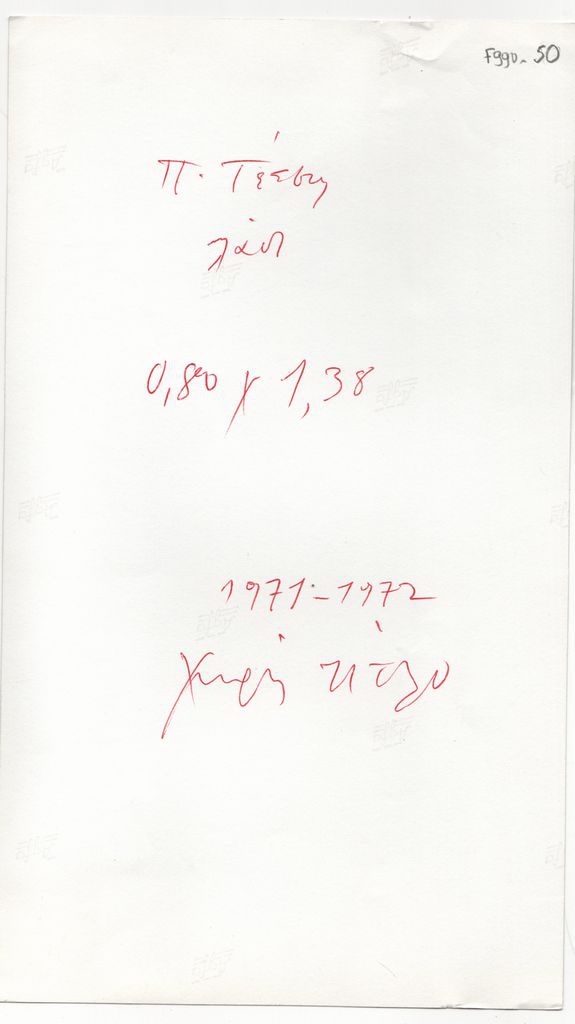 Fggo. 50
Π. Τέτση
λάδι
0,80 χ 1,38
1971-1972
Χωρίς τίτλο